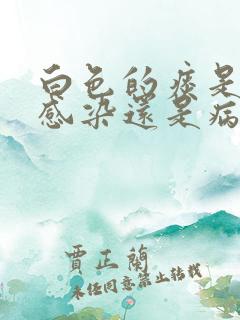 白色的痰是
感染還是病
賈正蘭
未经同意禁止转载